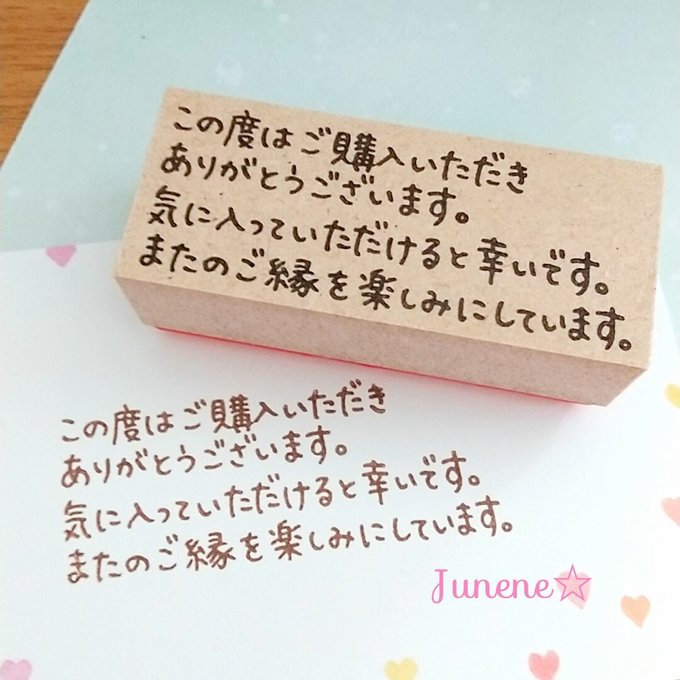 この度はご購入いただき
ありがとうございます。
気に入っていただけると幸いです。
またのご縁を楽しみにしています。
この度はご購入いただき
ありがとうございます。
気に入っていただけると幸いです。
またのご縁を楽しみにしています。
Junene☆